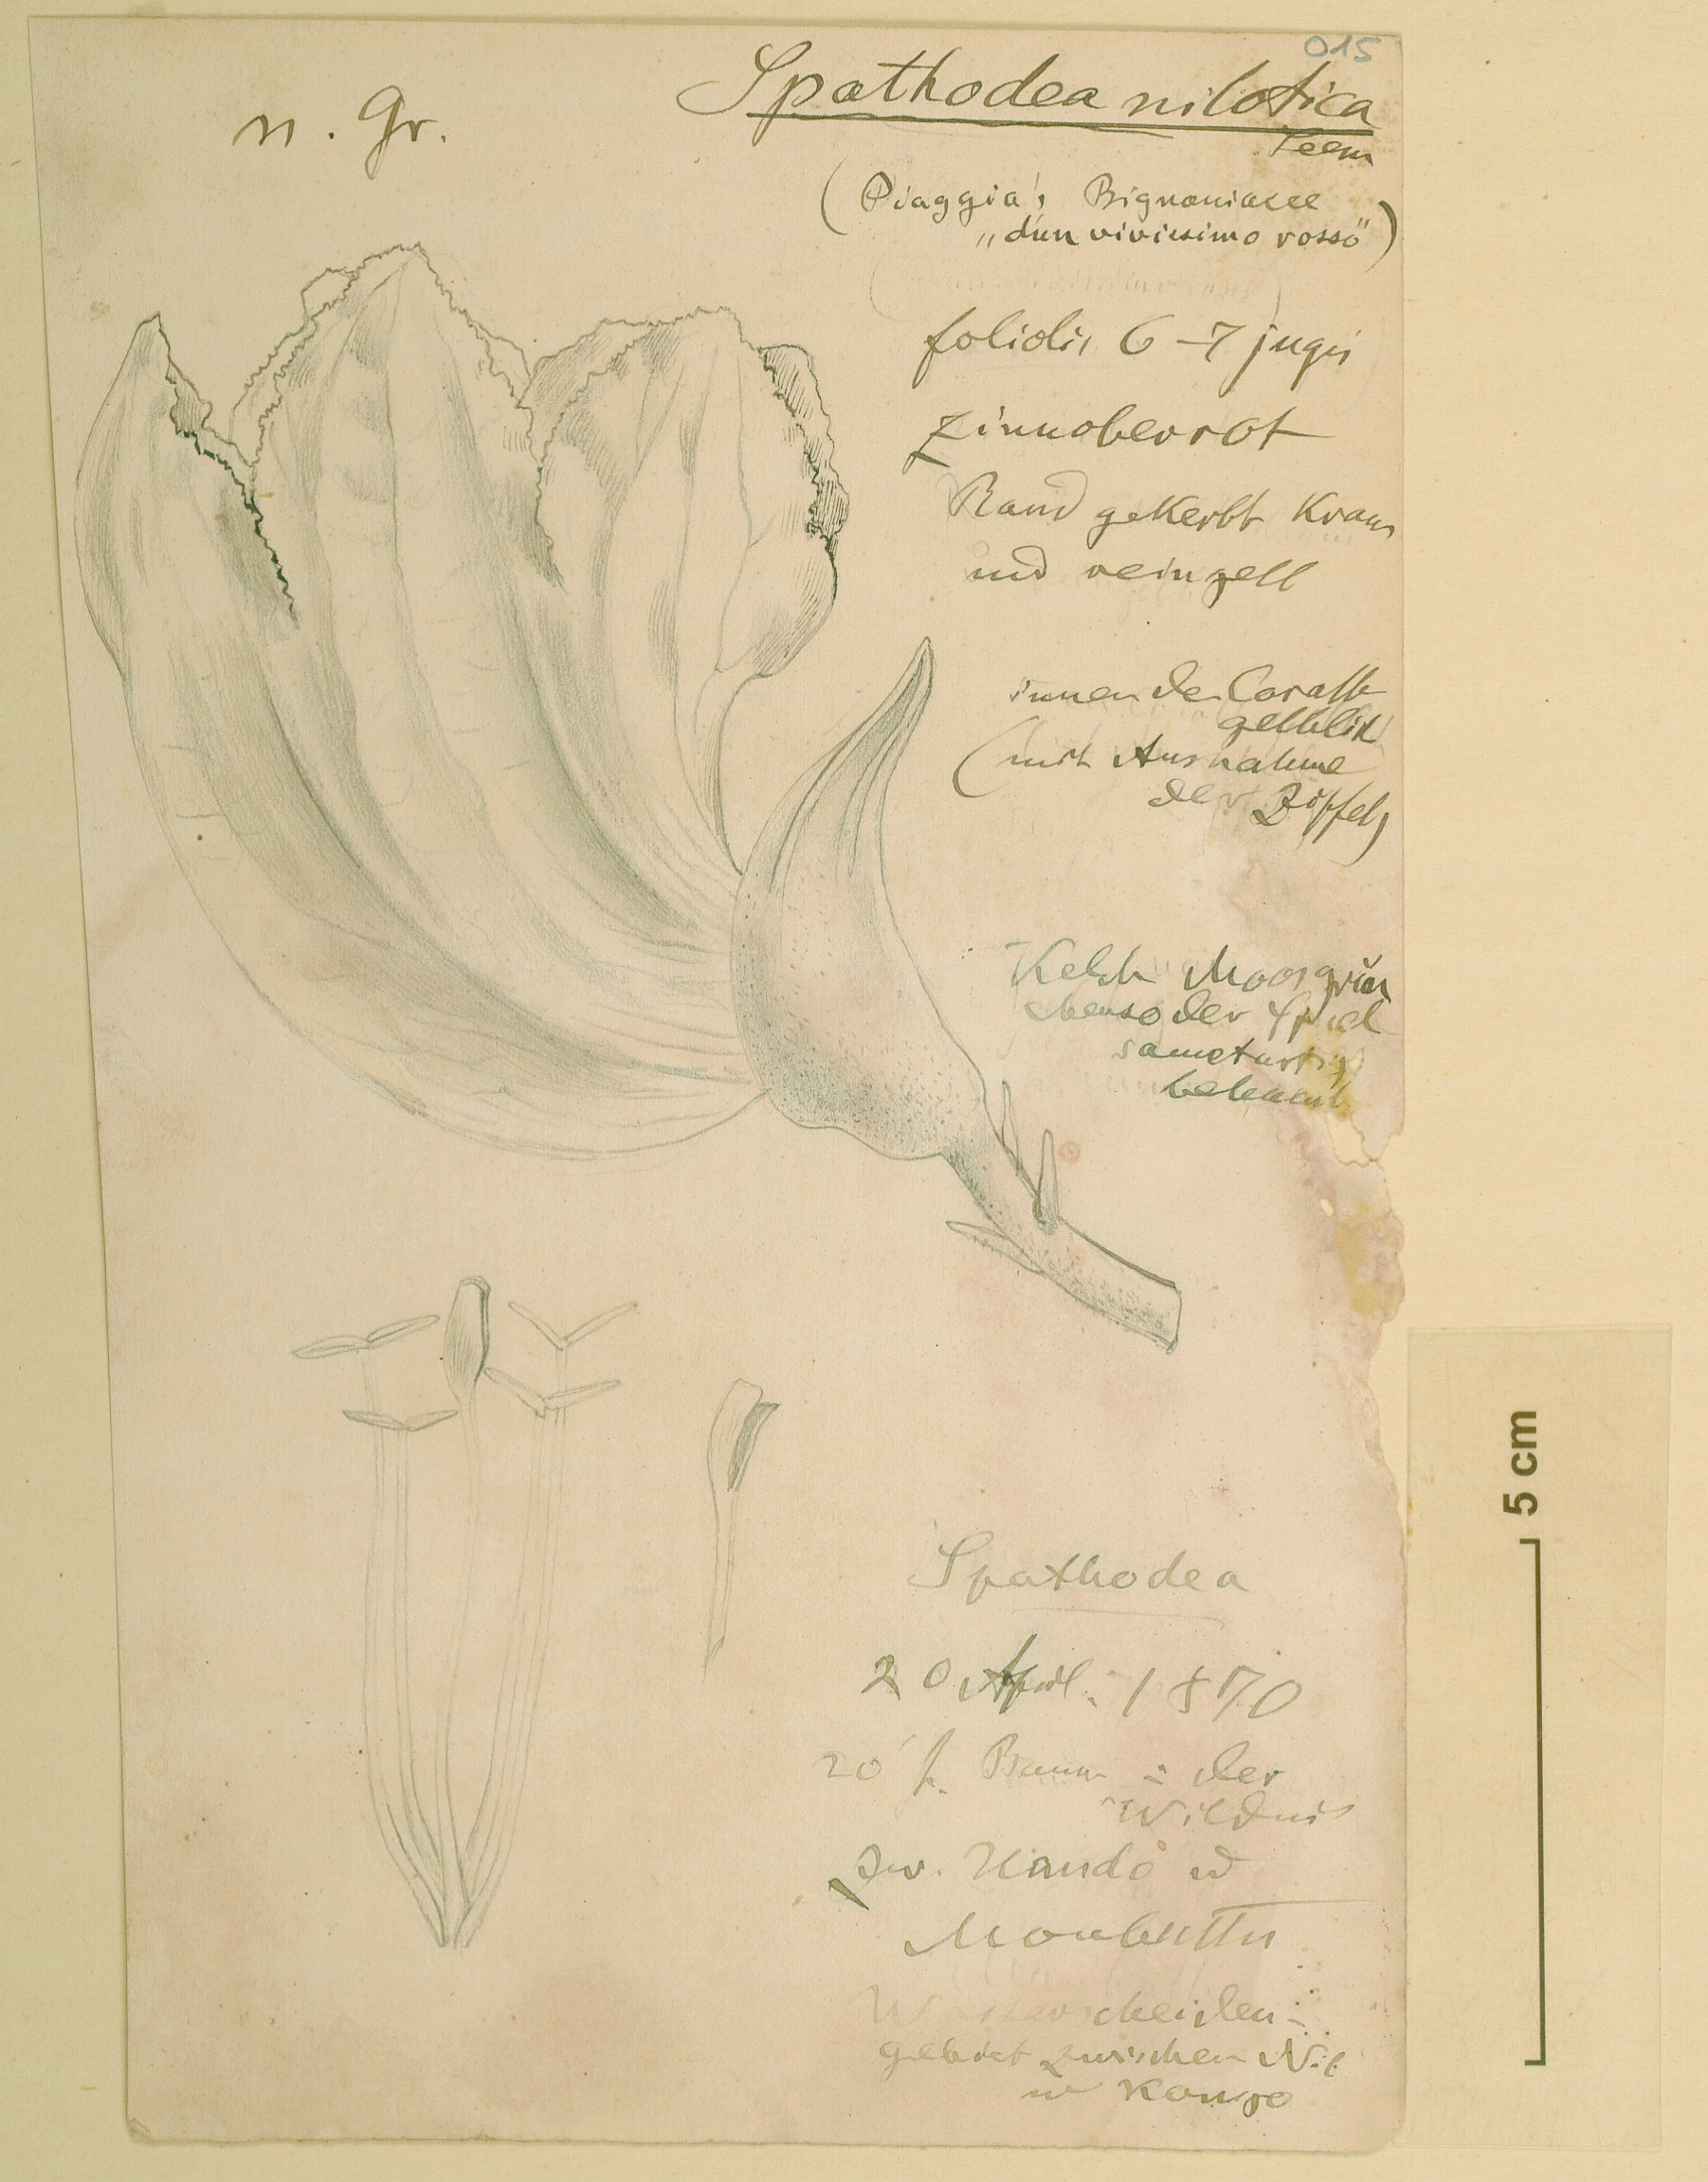 015
n. Gr.
Spathodea nilotica
Seem
(Piaggia's Bignoniacee
„d'un vivissimo rosso")
foliolis 6-7 jugis
zinnoberrot
Rand gekerbt kraus
und reingelb
innen die Corolle
gelblich
(mit Ausnahme
der Zipfel)
Kelch Moosgrün
ebenso der Stiel
sametartig
behaart
Spathodea
20 April. 1870
20' h. Baum i. der
Wildnis
zw. Uando u
Monbuttu
Wasserscheiden-
gebiet zwischen Nil
u Kongo
5 cm